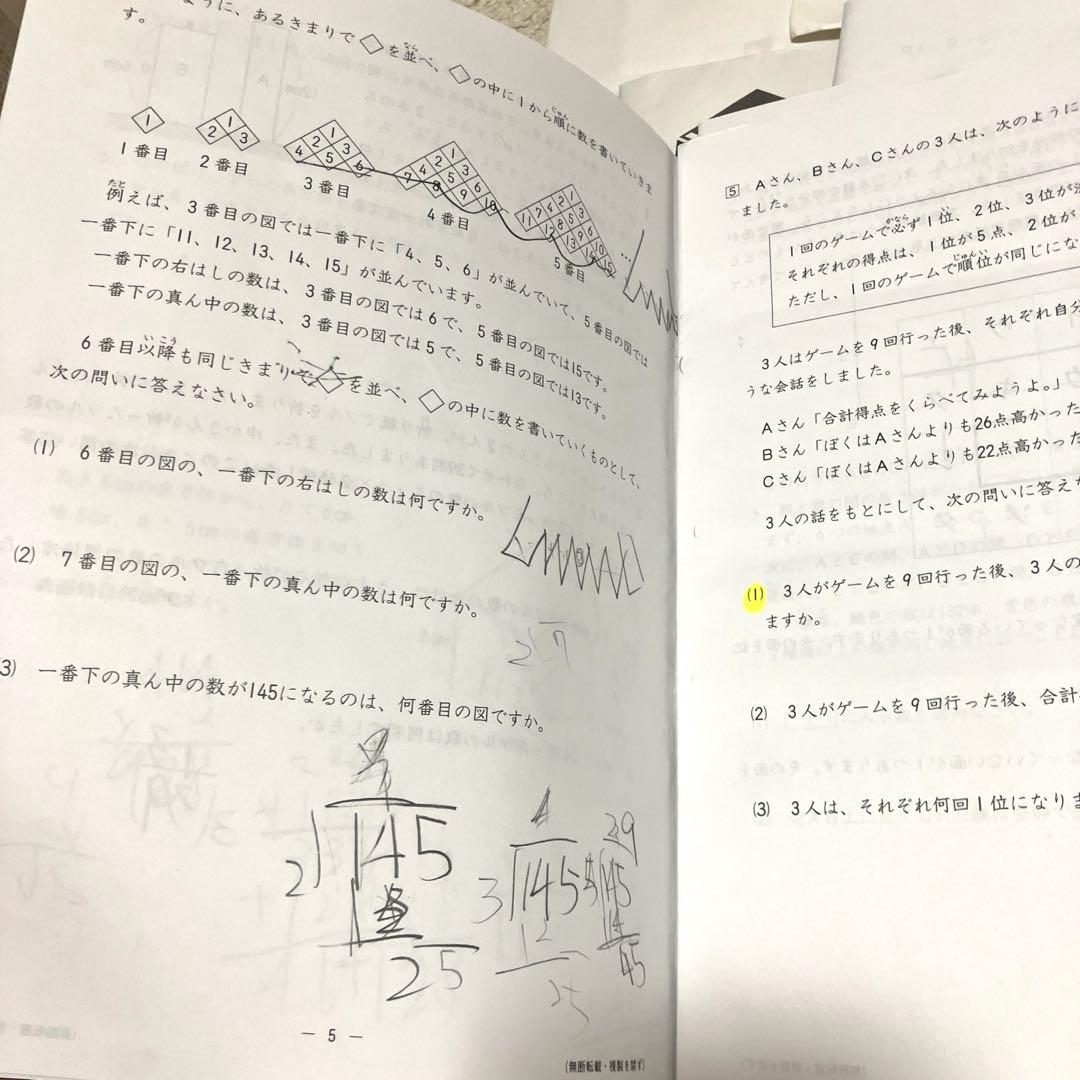 ように、あるきまりで◇を並べ、◇の中に1から順に数を書いていきま
す。
1番目
2番目
3番目
4番目
5番目
例えば、3番目の図では一番下に「4、5、6」が並んでいて、5番目の図では
一番下に「11、12、13、14、15」が並んでいます。
一番下の右はしの数は、3番目の図では6で、5番目の図では15です。
一番下の真ん中の数は、3番目の図では5で、5番目の図では13です。
6番目以降も同じきまりで◇を並べ、◇の中に数を書いていくものとして、
次の問いに答えなさい。
(1) 6番目の図の、一番下の右はしの数は何ですか。
(2) 7番目の図の、一番下の真ん中の数は何ですか。
2 7
3) 一番下の真ん中の数が145になるのは、何番目の図ですか。
2 145
25
4
3 145
12
25
39
145
45
― 5 ―
(無断転載・複製を禁ず)
5 Aさん、Bさん、Cさんの3人は、次のように
ました。
1回のゲームで必ず1位、2位、3位が
それぞれの得点は、1位が5点、2位が
ただし、1回のゲームで順位が同じにな
3人はゲームを9回行った後、それぞれ自分
うな会話をしました。
Aさん「合計得点をくらべてみようよ。」
Bさん「ぼくはAさんよりも26点高かった
Cさん「ぼくはAさんよりも22点高かった
3人の話をもとにして、次の問いに答え
(1) 3人がゲームを9回行った後、3人の
ますか。
(2) 3人がゲームを9回行った後、合計
(3) 3人は、それぞれ何回1位になりま